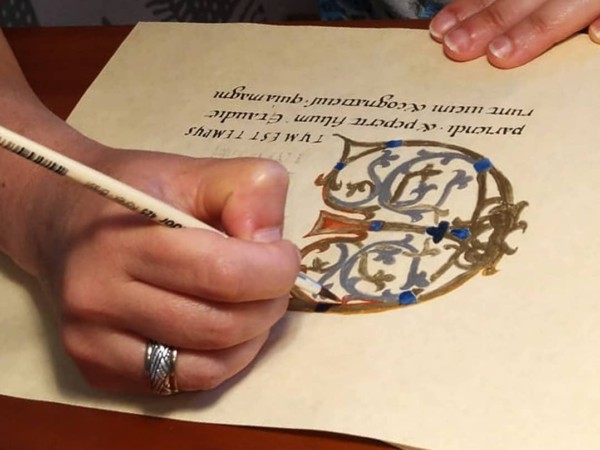 TVM EST TEMPVS
pariendi · & peperit filium · Et audie
runt uicini & cognati eius · quia magni